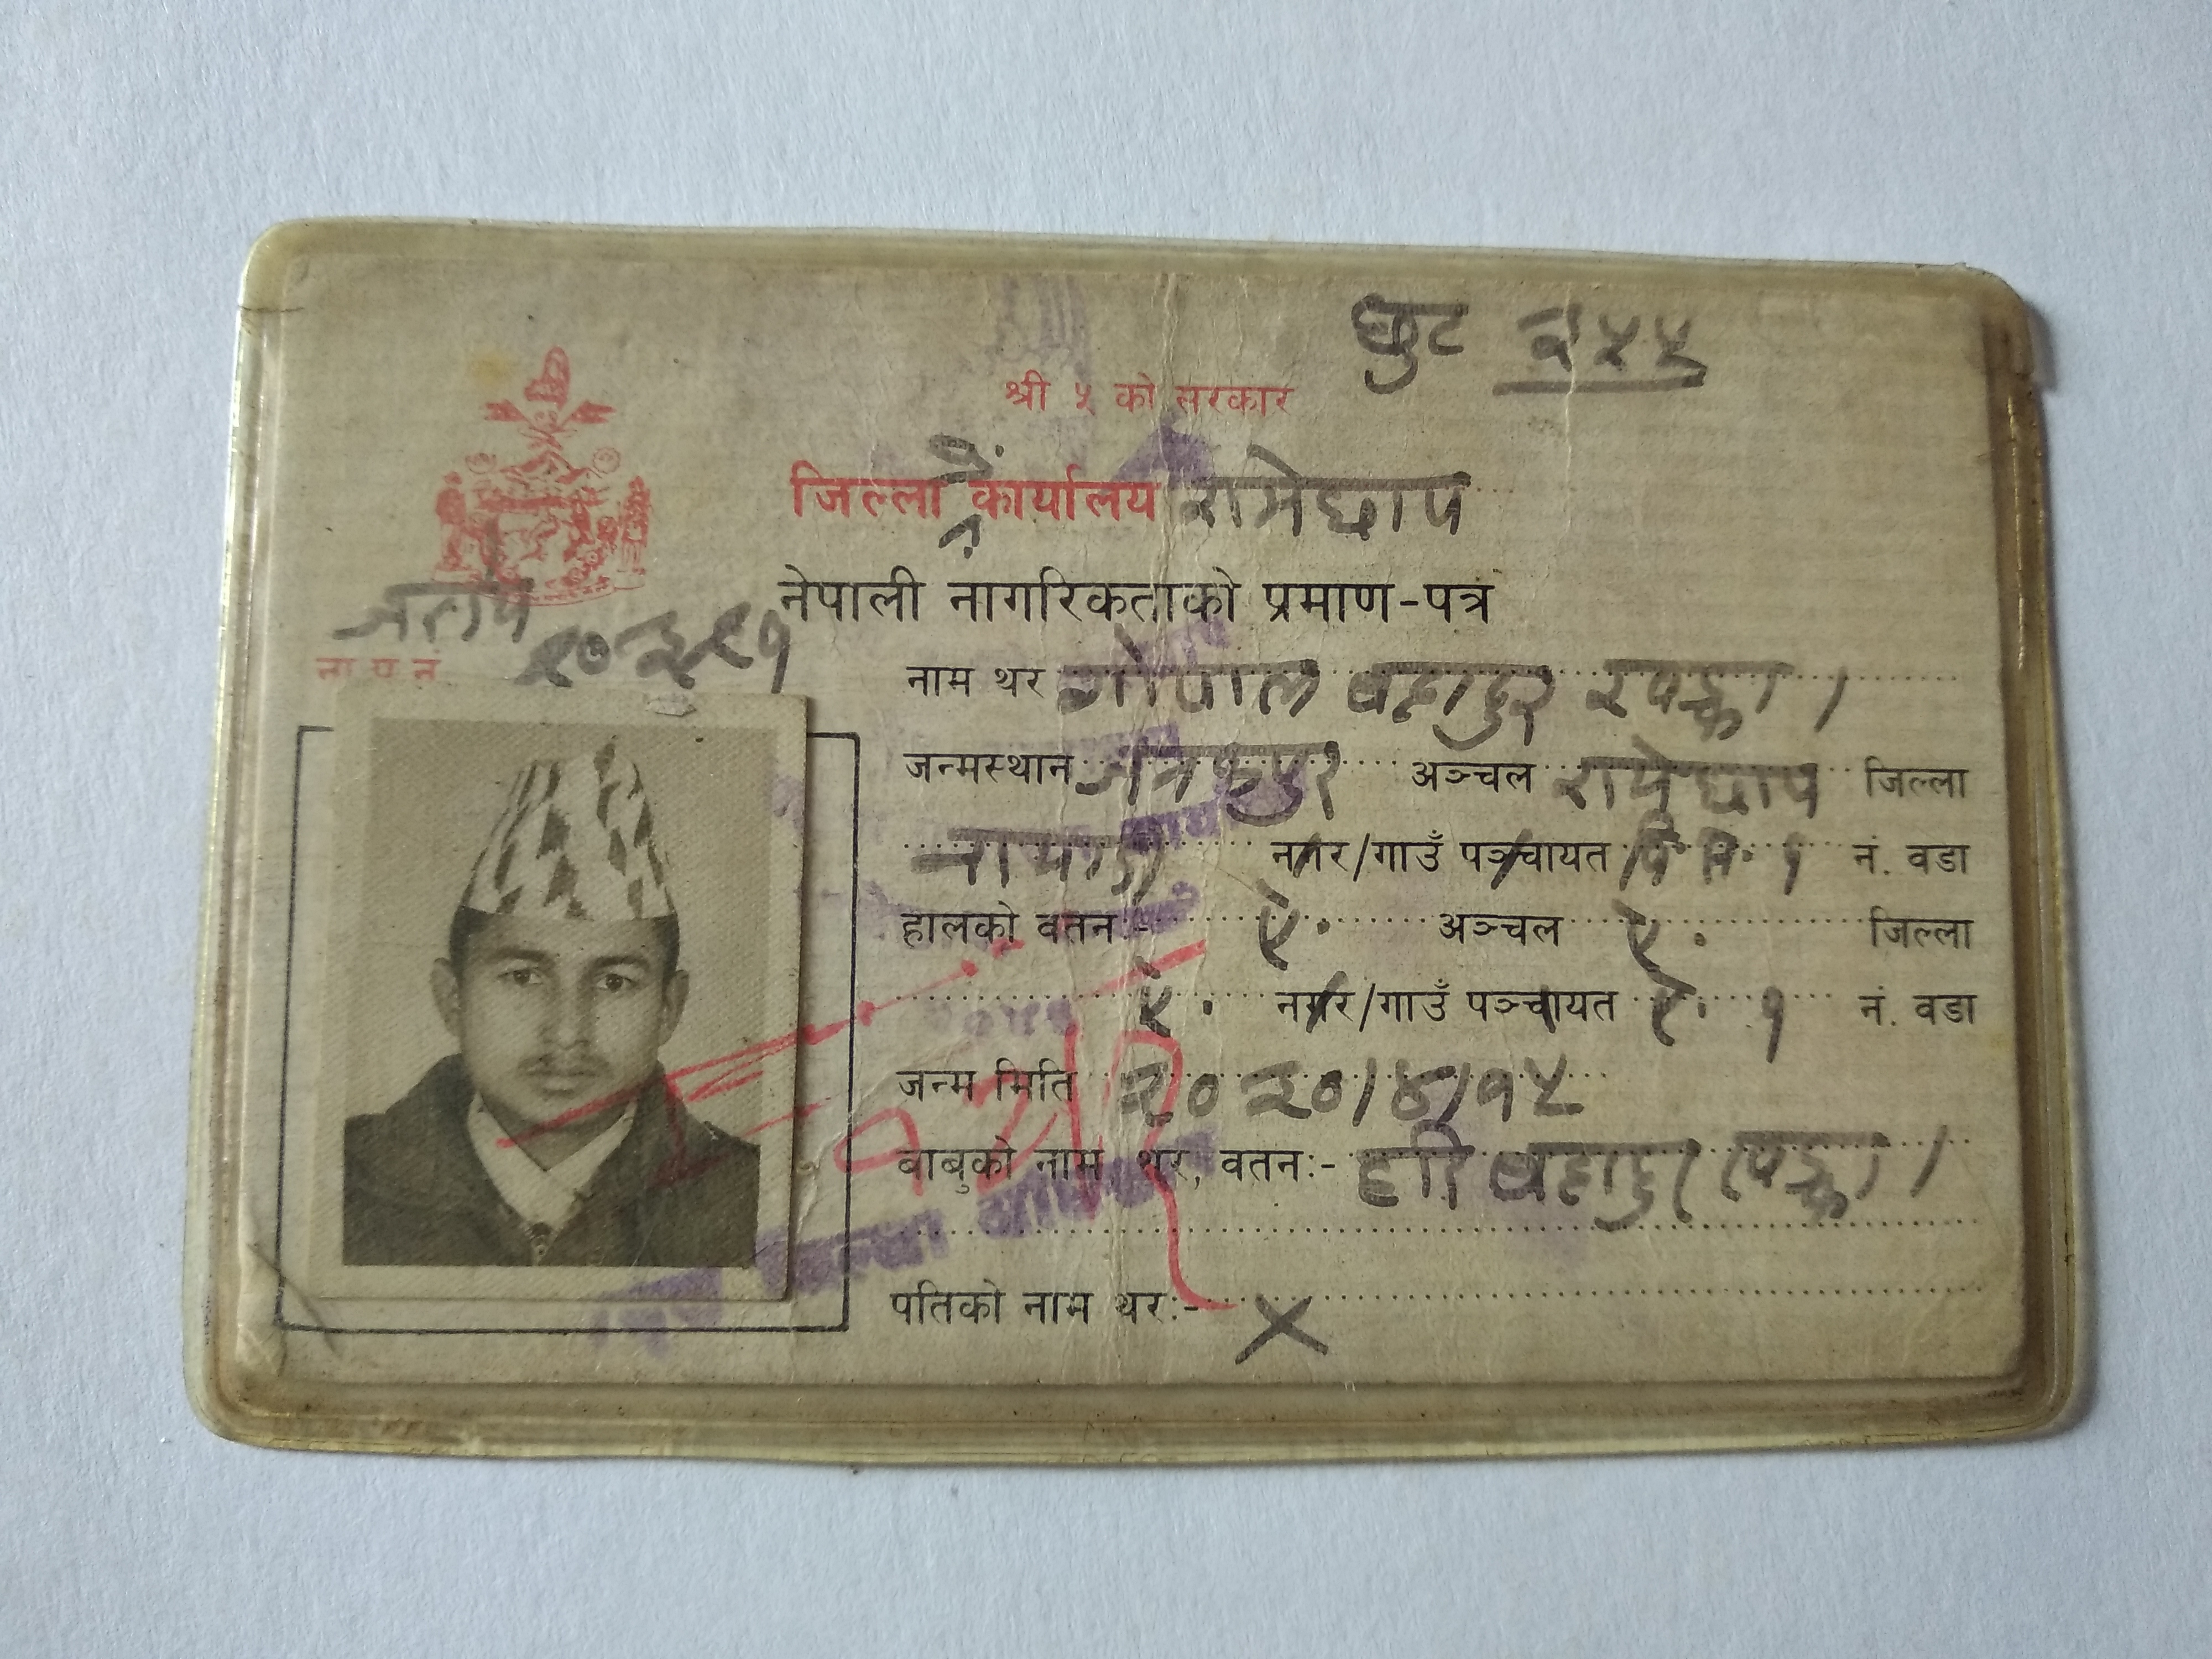 छुट २५५
श्री ५ को सरकार
जिल्ला कार्यालय रामेछाप
नेपाली नागरिकताको प्रमाण-पत्र
ना प न
नाम थर गोपाल बहादुर खड्का ।
जन्मस्थान जनकपुर अञ्चल रामेछाप जिल्ला
नगर/गाउँ पञ्चायत वि. स. १ नं. वडा
हालको वतन:- ऐ. अञ्चल ऐ. जिल्ला
ऐ. नगर/गाउँ पञ्चायत ऐ. १ नं. वडा
जन्म मिति २०२०/४/१५
बाबुको नाम, थर, वतन:- हरि बहादुर खड्का ।
पतिको नाम थर:- ×